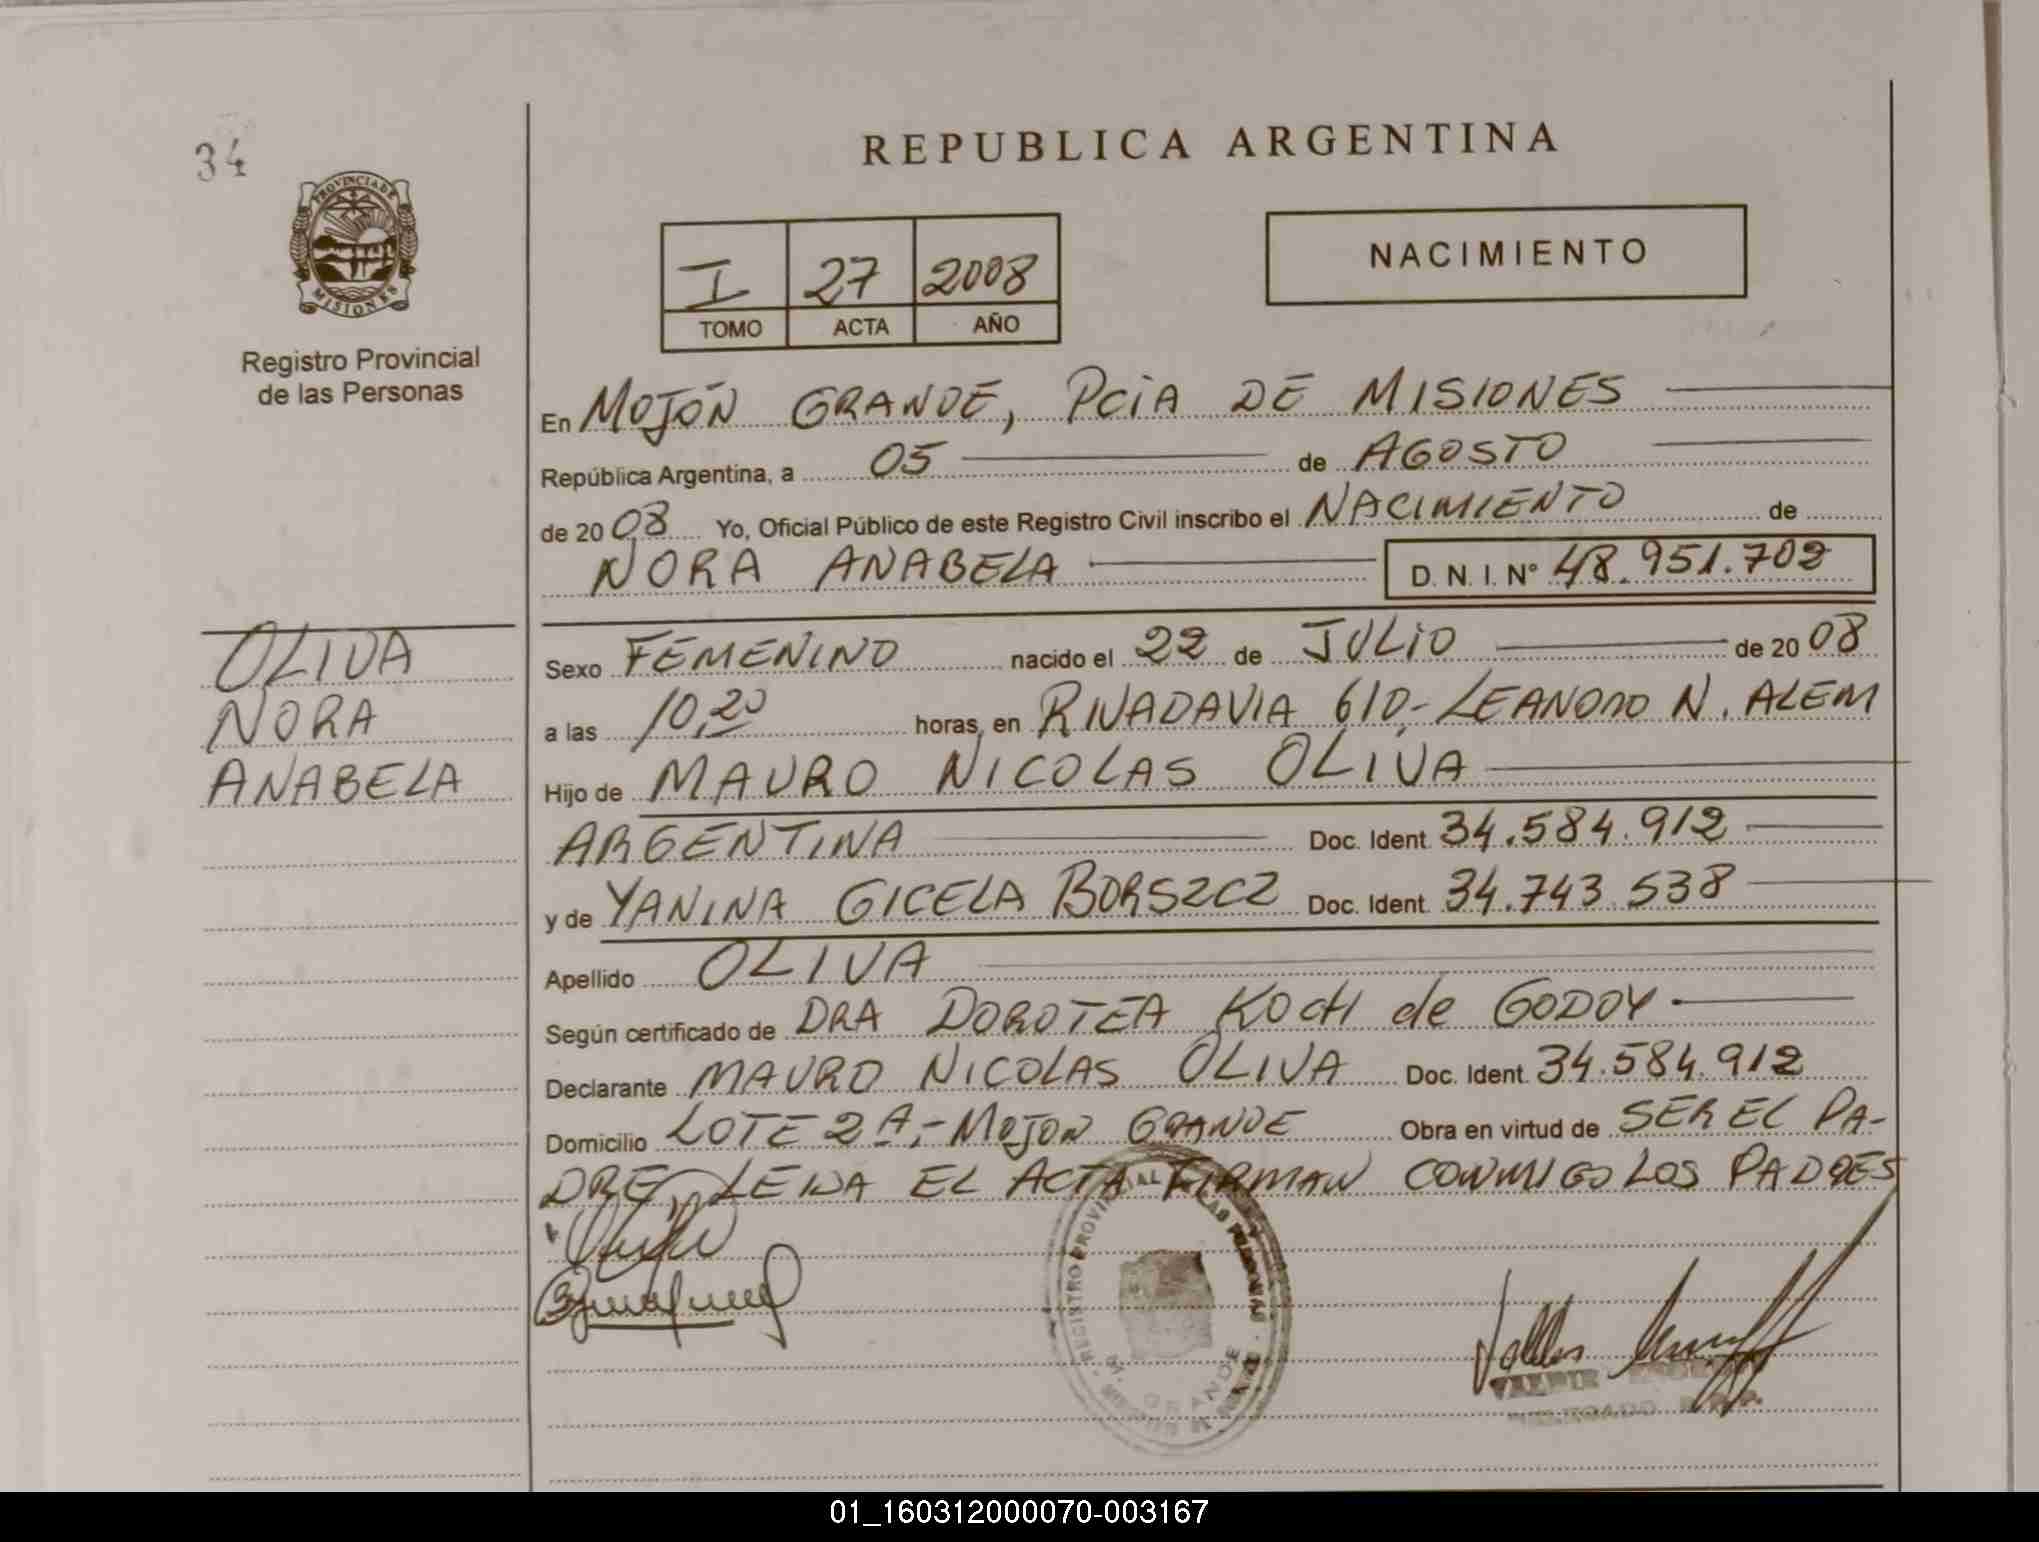 34
PROVINCIA DE
MISIONES
Registro Provincial
de las Personas
REPUBLICA ARGENTINA
I 27 2008
TOMO ACTA AÑO
NACIMIENTO
En MOJÓN GRANDE, PCIA DE MISIONES
República Argentina, a 05 de AGOSTO
de 2008 Yo, Oficial Público de este Registro Civil inscribo el NACIMIENTO de
NORA ANABELA D. N. I. Nº 48.951.702
OLIVA
NORA
ANABELA
Sexo FEMENINO nacido el 22 de JULIO de 2008
a las 10,20 horas, en RIVADAVIA 610.- LEANDRO N. ALEM
Hijo de MAURO NICOLAS OLIVA
ARGENTINA Doc. Ident. 34.584.912
y de YANINA GICELA BORSZCZ Doc. Ident. 34.743.538
Apellido OLIVA
Según certificado de DRA DOROTEA KOCH de GODOY
Declarante MAURO NICOLAS OLIVA Doc. Ident. 34.584.912
Domicilio LOTE 2 A.- MOJON GRANDE Obra en virtud de SER EL PA-
DRE, LEIDA EL ACTA FIRMAN CONMIGO LOS PADRES
REGISTRO PROVINCIAL DE LAS PERSONAS
M. GRANDE
VALDIR
DELEGADO
01_160312000070-003167